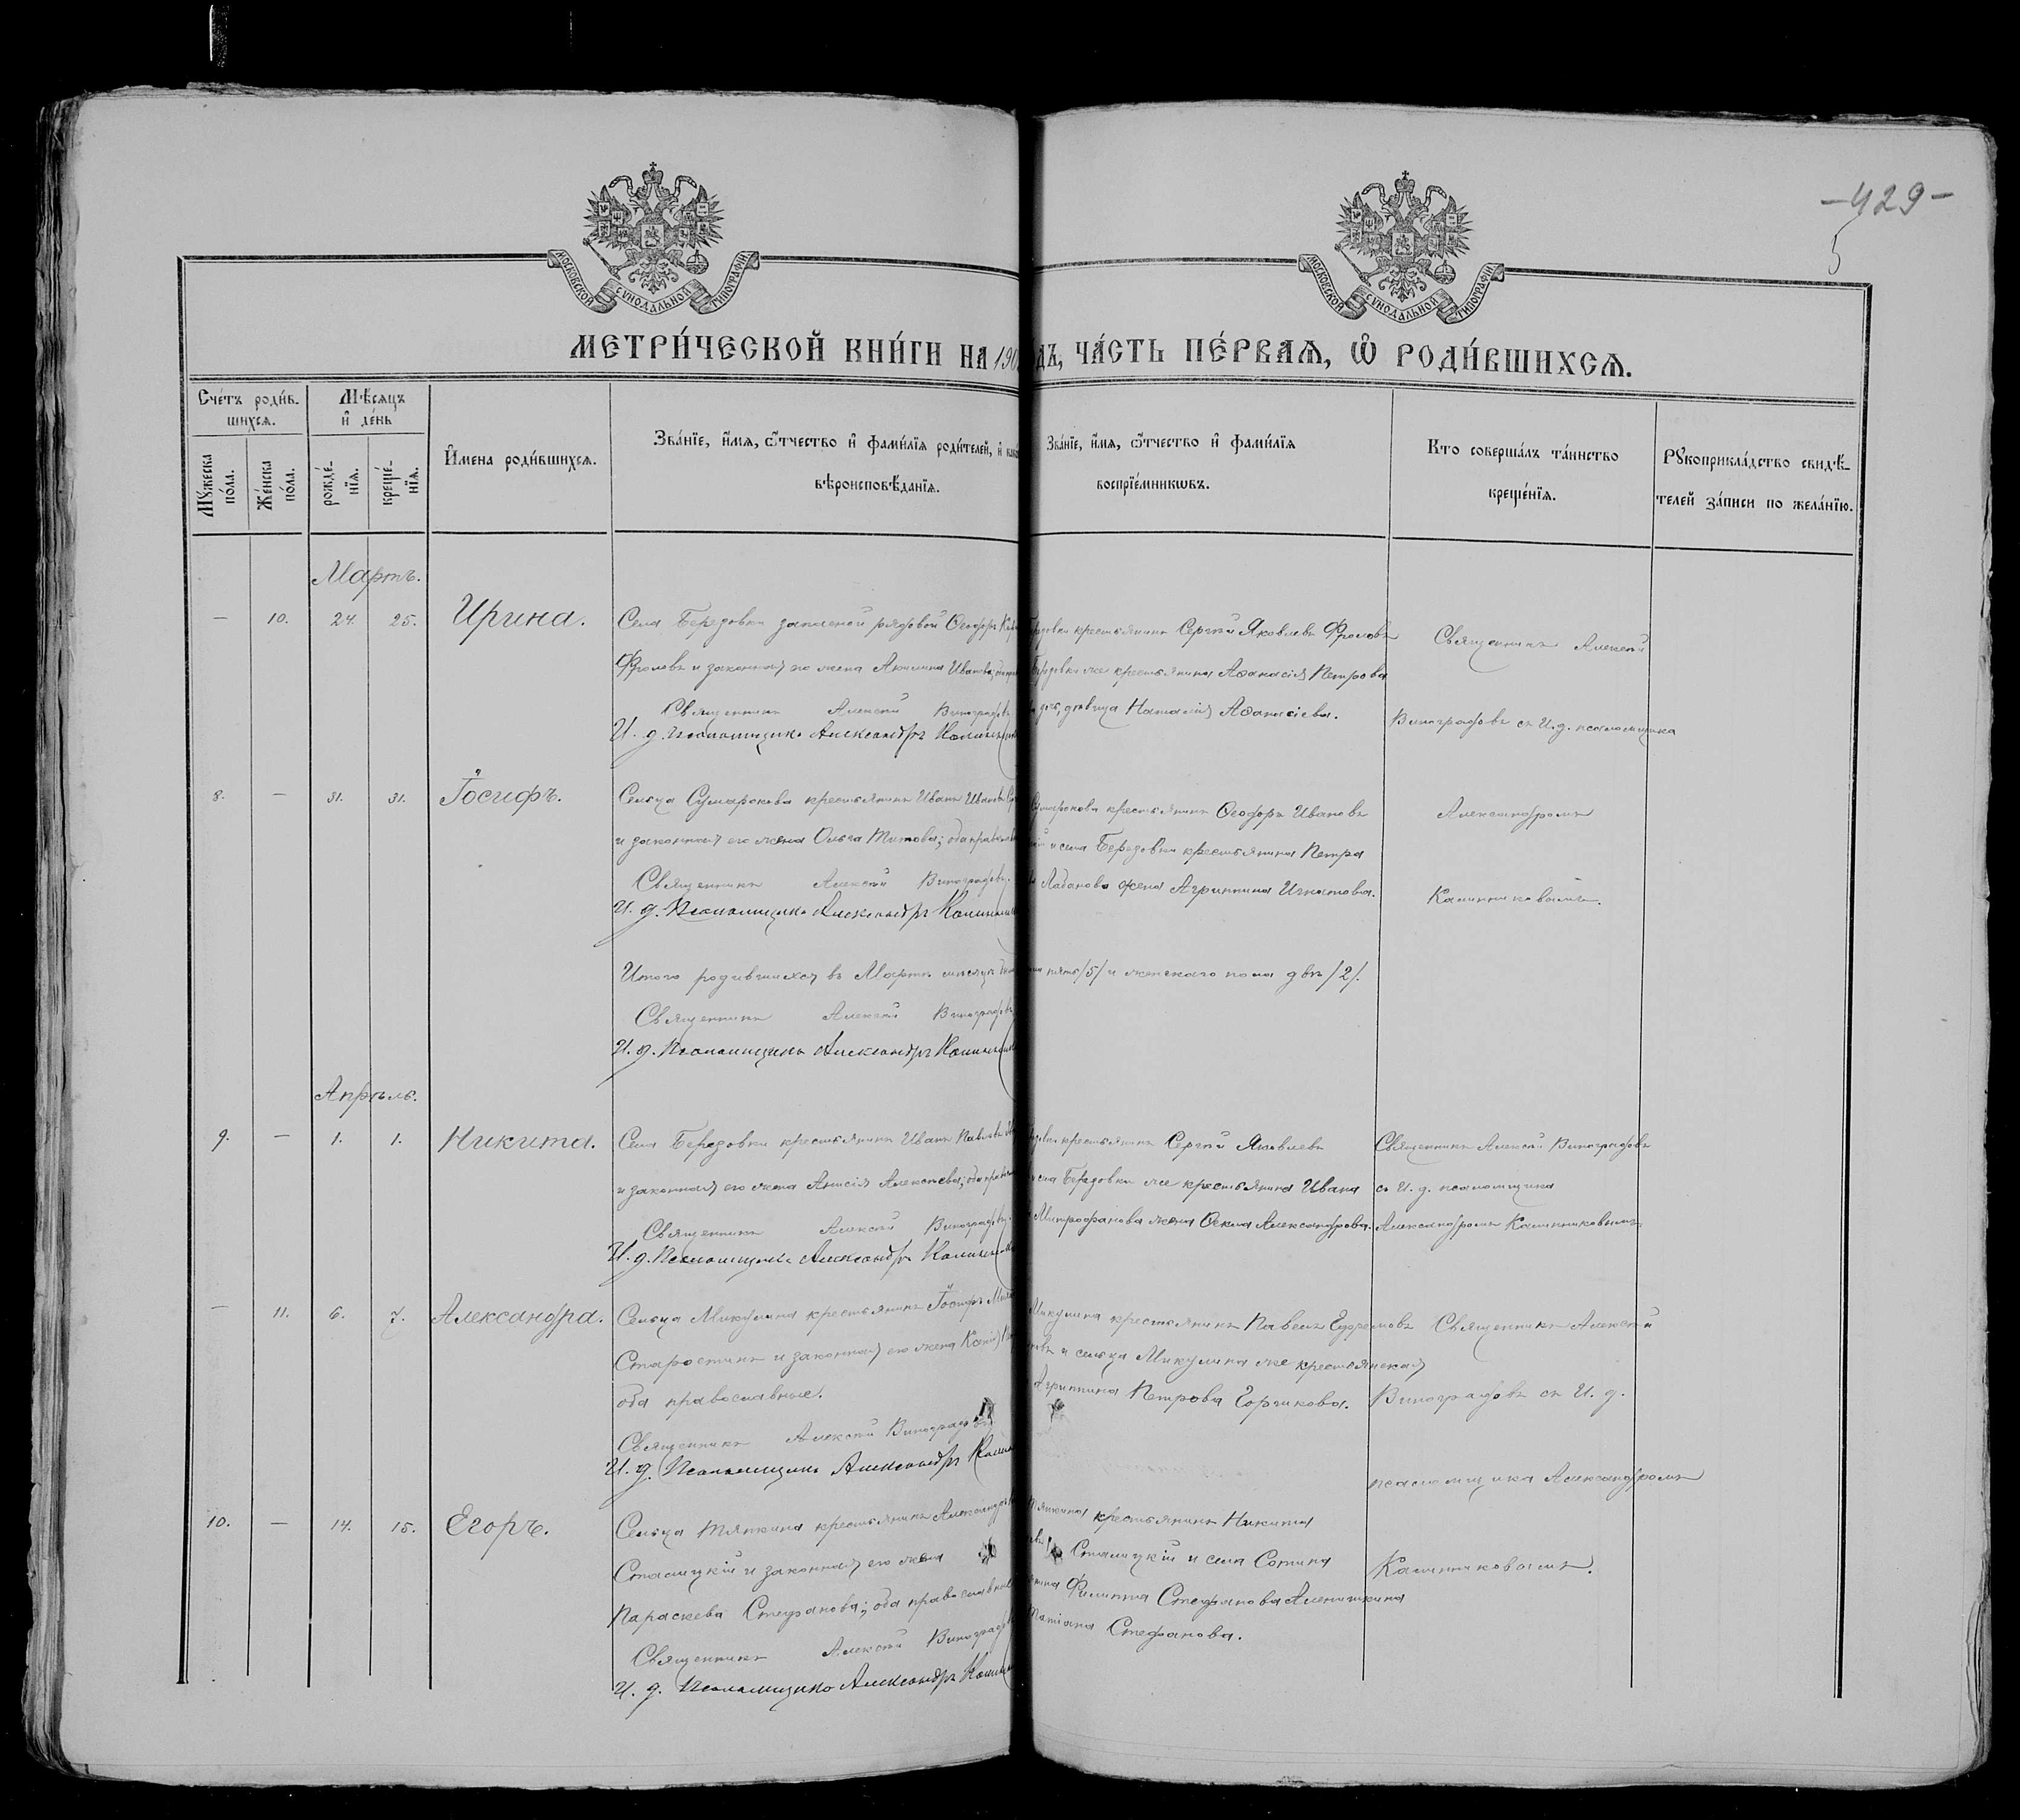 -429-
5
МОСКОВСКОЙ СѴНОДАЛЬНОЙ ТИПОГРАФІИ
МОСКОВСКОЙ СѴНОДАЛЬНОЙ ТИПОГРАФІИ
МЕТРИ́ЧЕСКОЙ КНИ́ГИ НА 190
ДЪ, ЧА́СТЬ ПЕ́РВАѦ, Ѡ҆ РОДИ́ВШИХСѦ.
Сче́тъ роди́в-
шихсѧ.
Мѣ́сѧцъ
и҆ де́нь
Мꙋ́жеска по́ла.
Же́нска по́ла.
рожде́-нїѧ.
креще́-нїѧ.
И҆мена роди́вшихсѧ.
Зва́нїе, и҆́мѧ, ѻ҆́тчество и҆ фами́лїѧ роди́телей, и҆
вѣроисповѣ́данїѧ.
Зва́нїе, и҆́мѧ, ѻ҆́тчество и҆ фами́лїѧ
воспрїе́мникѡвъ.
Кто соверша́лъ та́инство
креще́нїѧ.
Рꙋкоприкла́дство свидѣ́-
телей за́писи по жела́нїю.
Мартъ.
— 10. 24. 25. Ирина.
Села Березовки запасной рядовой Ѳеодоръ
Фроловъ и законная его жена Акилина Иванова;
Священникъ Алексѣй Виноградовъ
И. д. Псаломщика Александръ
крестьянинъ Сергѣй Яковлевъ Фроловъ
же крестьянина Аѳанасія Петрова
дѣвица Наталія Аѳанасіева.
Священникъ Алексѣй
Виноградовъ съ И. д. псаломщика
8. — 31. 31. Іосифъ.
Сельца Сумарокова крестьянинъ Иванъ Ивановъ
и законная его жена Ольга Титова; оба
Священникъ Алексѣй Виноградовъ.
И. д. Псаломщика Александръ
крестьянинъ Ѳеодоръ Ивановъ
и села Березовки крестьянина Петра
жена Агриппина Игнатова.
Александромъ
Калинниковымъ.
Итого родившихся въ Мартѣ мѣсяцѣ
пять /5/ и женскаго пола двѣ /2/.
Священникъ Алексѣй Виноградовъ
И. д. Псаломщика Александръ
Апрѣль.
9. — 1. 1. Никита.
Села Березовки крестьянинъ Иванъ Павловъ
и законная его жена Анисія Алексѣева;
Священникъ Алексѣй Виноградовъ.
И. д. Псаломщика Александръ
крестьянинъ Сергѣй Яковлевъ
села Березовки же крестьянина Ивана
Митрофанова жена Ѳекла Александрова.
Священникъ Алексѣй Виноградовъ
съ И. д. псаломщика
Александромъ Калинниковымъ.
— 11. 6. 7. Александра.
Сельца Микулина крестьянинъ Іосифъ
Старостинъ и законная его жена
оба православные.
Священникъ Алексѣй Виноградовъ
И. д. Псаломщика Александръ
Микулина крестьянинъ Павелъ Ефремовъ
и сельца Микулина же крестьянская
Агриппина Петрова Горчикова.
Священникъ Алексѣй
Виноградовъ съ И. д.
псаломщика Александромъ
Калинниковымъ.
10. — 14. 15. Егоръ.
Сельца Тяпкина крестьянинъ
Сталицкій и законная его жена
Параскева Стефанова; оба
Священникъ Алексѣй
И. д. Псаломщика Александръ
крестьянинъ Никита
Сталицкій и села Сотина
Филиппа Стефанова
Татіана Стефанова.